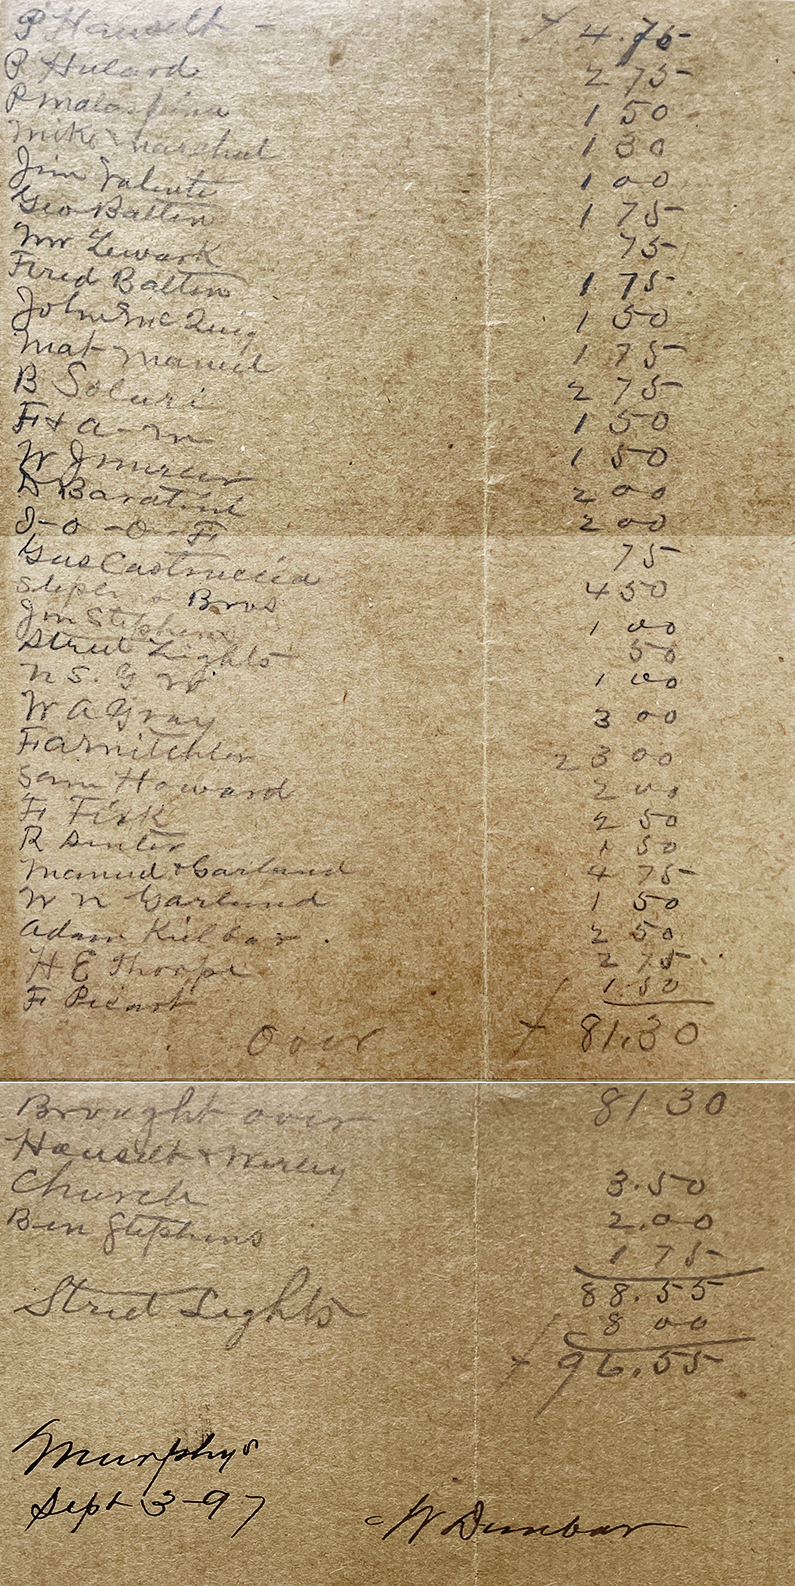 P Hauselt - 4.75
P Hulard 2 75
P Malaspina 1 50
Mike Marshal 1 30
Jim Valente 1 00
Geo Batten 1 75
Mr Lewark 75
Fred Batten 1 75
John McQuig 1 50
Mat Manuel 1 75
B Soluri 2 75
F + A - M 1 50
W J Mercer 1 50
D Baratini 2 00
I - O - O - F 2 00
Gus Castruccia 75
Bros 4 50
Jim Stephens 1 00
Street Lights 50
N S. G W. 1 00
W A Gray 3 00
F A Mitchler 23 00
Sam Howard 2 00
F Fisk 2 50
R 1 50
Manuel & Garland 4 75
W N Garland 1 50
Adam 2 50
H E Thorpe 2 75
F Picart 1.50
Over 81.30
Brought over 81 30
Hauselt &
Church 3.50
Ben Stephens 2.00
1 75
88.55
Street Lights 8 00
96.55
Murphys
Sept 3-97
W Dunbar